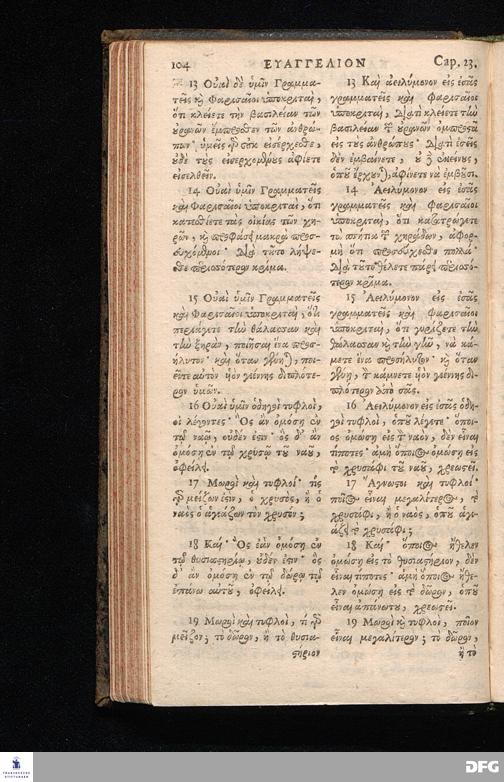 104 ΕΥΑΓΓΕΛΙΟΝ Cap. 23.
13 Οὐαὶ δὲ ὑμῖν Γραμμα-
τεῖς καὶ Φαρισαῖοι ὑποκριταὶ,
ὅτι κλείετε τὴν βασιλείαν τῶν
οὐρανῶν ἔμπροσθεν τῶν ἀνθρώ-
πων· ὑμεῖς γὰρ οὐκ εἰσέρχεσθε,
οὐδὲ τοὺς εἰσερχομένους ἀφίετε
εἰσελθεῖν.
14 Οὐαὶ ὑμῖν Γραμματεῖς
καὶ Φαρισαῖοι ὑποκριταὶ, ὅτι
κατεσθίετε τὰς οἰκίας τῶν χη-
ρῶν, καὶ προφάσει μακρὰ προσ-
ευχόμενοι· διὰ τοῦτο λήψε-
σθε περισσότερον κρίμα.
15 Οὐαὶ ὑμῖν Γραμματεῖς
καὶ Φαρισαῖοι ὑποκριταὶ, ὅτι
περιάγετε τὴν θάλασσαν καὶ
τὴν ξηρὰν, ποιῆσαι ἕνα προσ-
ήλυτον· καὶ ὅταν γένηται, ποι-
εῖτε αὐτὸν υἱὸν γεέννης διπλότε-
ρον ὑμῶν.
16 Οὐαὶ ὑμῖν ὁδηγοὶ τυφλοὶ,
οἱ λέγοντες· Ὃς ἂν ὀμόσῃ ἐν
τῷ ναῷ, οὐδέν ἐστιν· ὃς δ' ἂν
ὀμόσῃ ἐν τῷ χρυσῷ τοῦ ναοῦ,
ὀφείλει.
17 Μωροὶ καὶ τυφλοί· τίς
γὰρ μείζων ἐστὶν, ὁ χρυσὸς, ἢ ὁ
ναὸς ὁ ἁγιάζων τὸν χρυσόν;
18 Καί· Ὃς ἐὰν ὀμόσῃ ἐν
τῷ θυσιαστηρίῳ, οὐδέν ἐστιν· ὃς
δ' ἂν ὀμόσῃ ἐν τῷ δώρῳ τῷ
ἐπάνω αὐτοῦ, ὀφείλει.
19 Μωροὶ καὶ τυφλοὶ, τί γὰρ
μεῖζον; τὸ δῶρον, ἢ τὸ θυσια-
στήριον
13 Καὶ ἀειλύμονον εἰς ἐσᾶς
γραμματεῖς καὶ φαρισαῖοι
ὑποκριταὶ, διατὶ κλείετε τὴν
βασιλείαν τῶν οὐρανῶν ὀμπροστὰ
εἰς τοὺς ἀνθρώπους· διατὶ ἐσεῖς
δὲν ἐμβαίνετε, οὐδὲ ἐκείνους,
ὁποῦ ἔρχονται, ἀφίνετε νὰ ἐμβοῦσι.
14 Ἀειλύμονον εἰς ἐσᾶς
γραμματεῖς καὶ φαρισαῖοι
ὑποκριταὶ, ὅτι κατατρώγετε
τὰ σπήτια τῶν χηράδων, ἀφορ-
μὴ ὅτι προσεύχεσθε πολλά·
διὰ τοῦτο θέλετε πάρῃ περισσό-
τερον κρῖμα.
15 Ἀειλύμονον εἰς ἐσᾶς
γραμματεῖς καὶ φαρισαῖοι
ὑποκριταὶ, ὅτι γυρίζετε τὴν
θάλασσαν καὶ τὴν γῆν, νὰ κά-
μετε ἕνα προσήλυτον· καὶ ὅταν
γένῃ, τὸν κάμνετε υἱὸν γεέννης δι-
πλότερον ἀπὸ σᾶς.
16 Ἀειλύμονον εἰς ἐσᾶς ὁδη-
γοὶ τυφλοὶ, ὁποῦ λέγετε· ὅποι-
ος ὀμώσῃ εἰς τὸν ναὸν, δὲν εἶναι
τίποτες· ἀμὴ ὅποιος ὀμώσῃ εἰς
τὸ χρυσάφι τοῦ ναοῦ, χρεωστεῖ.
17 Ἄγνωστοι καὶ τυφλοί·
ποῖος εἶναι μεγαλίτερος, τὸ
χρυσάφι, ἢ ὁ ναὸς, ὁποῦ ἁγι-
άζει τὸ χρυσάφι;
18 Καί· ὅποιος ἤθελεν
ὀμώσῃ εἰς τὸ θυσιαστήριον, δὲν
εἶναι τίποτες· ἀμὴ ὅποιος ἤθε-
λεν ὀμώσῃ εἰς τὸ δῶρον, ὁποῦ
εἶναι ἀπάνωτου, χρεωστεῖ.
19 Μωροὶ καὶ τυφλοὶ, ποῖον
εἶναι μεγαλίτερον; τὸ δῶρον,
ἢ τὸ
FRANCKESCHE STIFTUNGEN
DFG